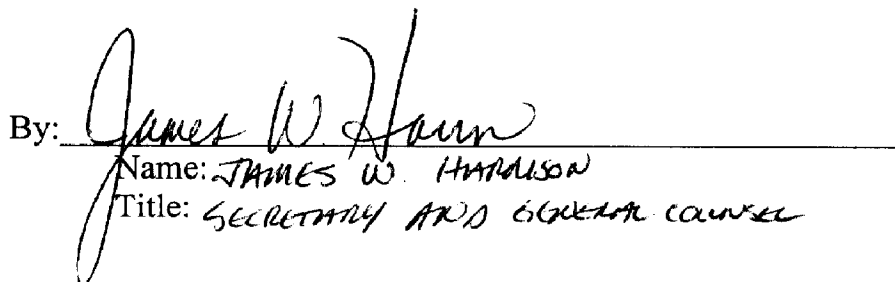 By: James W. Harrison
Name: JAMES W. HARRISON
Title: SECRETARY AND GENERAL COUNSEL